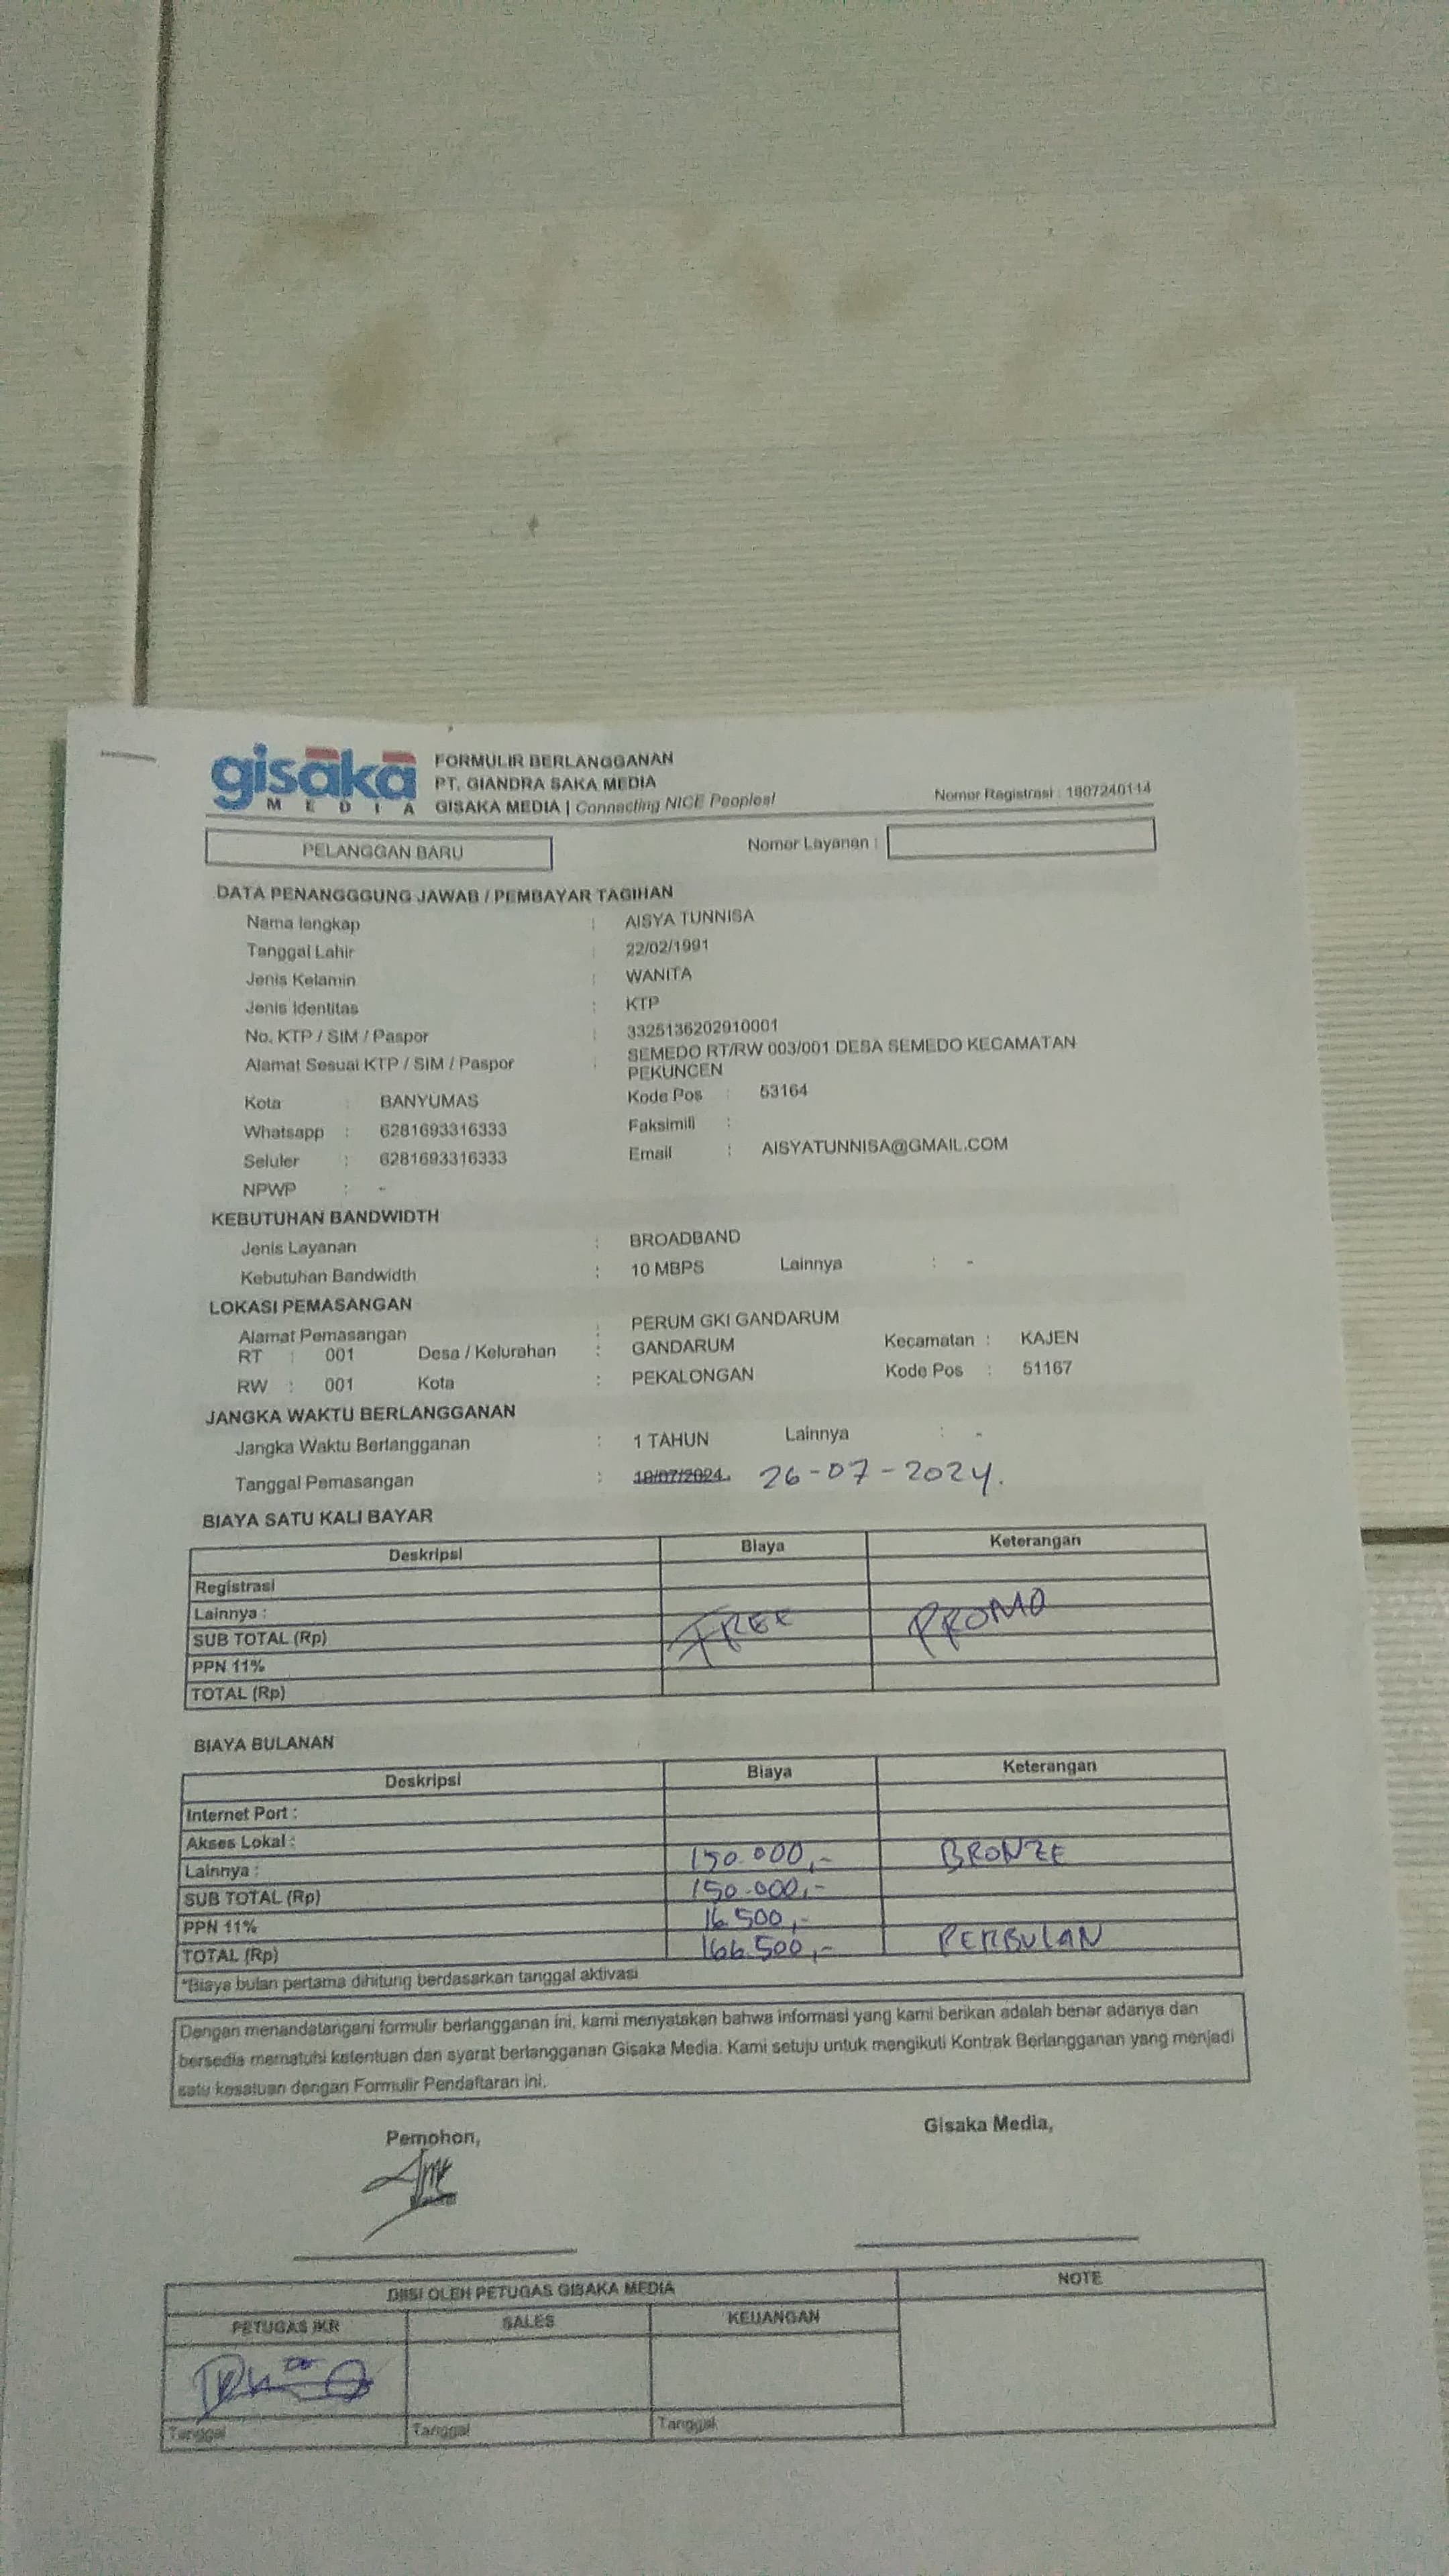 gisaka
MEDIA
FORMULIR BERLANGGANAN
PT. GIANDRA SAKA MEDIA
GISAKA MEDIA | Connecting NICE Peoples!
Nomor Registrasi : 1807240114
PELANGGAN BARU
Nomor Layanan :
DATA PENANGGGUNG JAWAB / PEMBAYAR TAGIHAN
Nama lengkap : AISYA TUNNISA
Tanggal Lahir : 22/02/1991
Jenis Kelamin : WANITA
Jenis Identitas : KTP
No. KTP / SIM / Paspor : 3325136202910001
Alamat Sesuai KTP / SIM / Paspor : SEMEDO RT/RW 003/001 DESA SEMEDO KECAMATAN
PEKUNCEN
Kota : BANYUMAS Kode Pos : 53164
Whatsapp : 6281693316333 Faksimili :
Seluler : 6281693316333 Email : AISYATUNNISA@GMAIL.COM
NPWP : -
KEBUTUHAN BANDWIDTH
Jenis Layanan : BROADBAND
Kebutuhan Bandwidth : 10 MBPS Lainnya : -
LOKASI PEMASANGAN
Alamat Pemasangan : PERUM GKI GANDARUM
RT : 001 Desa / Kelurahan : GANDARUM Kecamatan : KAJEN
RW : 001 Kota : PEKALONGAN Kode Pos : 51167
JANGKA WAKTU BERLANGGANAN
Jangka Waktu Berlangganan : 1 TAHUN Lainnya : -
Tanggal Pemasangan : 26-07-2024.
BIAYA SATU KALI BAYAR
Deskripsi Biaya Keterangan
Registrasi
Lainnya :
SUB TOTAL (Rp) FREE PROMO
PPN 11%
TOTAL (Rp)
BIAYA BULANAN
Deskripsi Biaya Keterangan
Internet Port :
Akses Lokal :
Lainnya : 150.000,- BRONZE
SUB TOTAL (Rp) 150.000,-
PPN 11% 16.500,-
TOTAL (Rp) 166.500,- PERBULAN
*Biaya bulan pertama dihitung berdasarkan tanggal aktivasi
Dengan menandatangani formulir berlangganan ini, kami menyatakan bahwa informasi yang kami berikan adalah benar adanya dan
bersedia mematuhi ketentuan dan syarat berlangganan Gisaka Media. Kami setuju untuk mengikuti Kontrak Berlangganan yang menjadi
satu kesatuan dengan Formulir Pendaftaran ini.
Pemohon, Gisaka Media,
DIISI OLEH PETUGAS GISAKA MEDIA NOTE
PETUGAS IKR SALES KEUANGAN
Tanggal Tanggal Tanggal